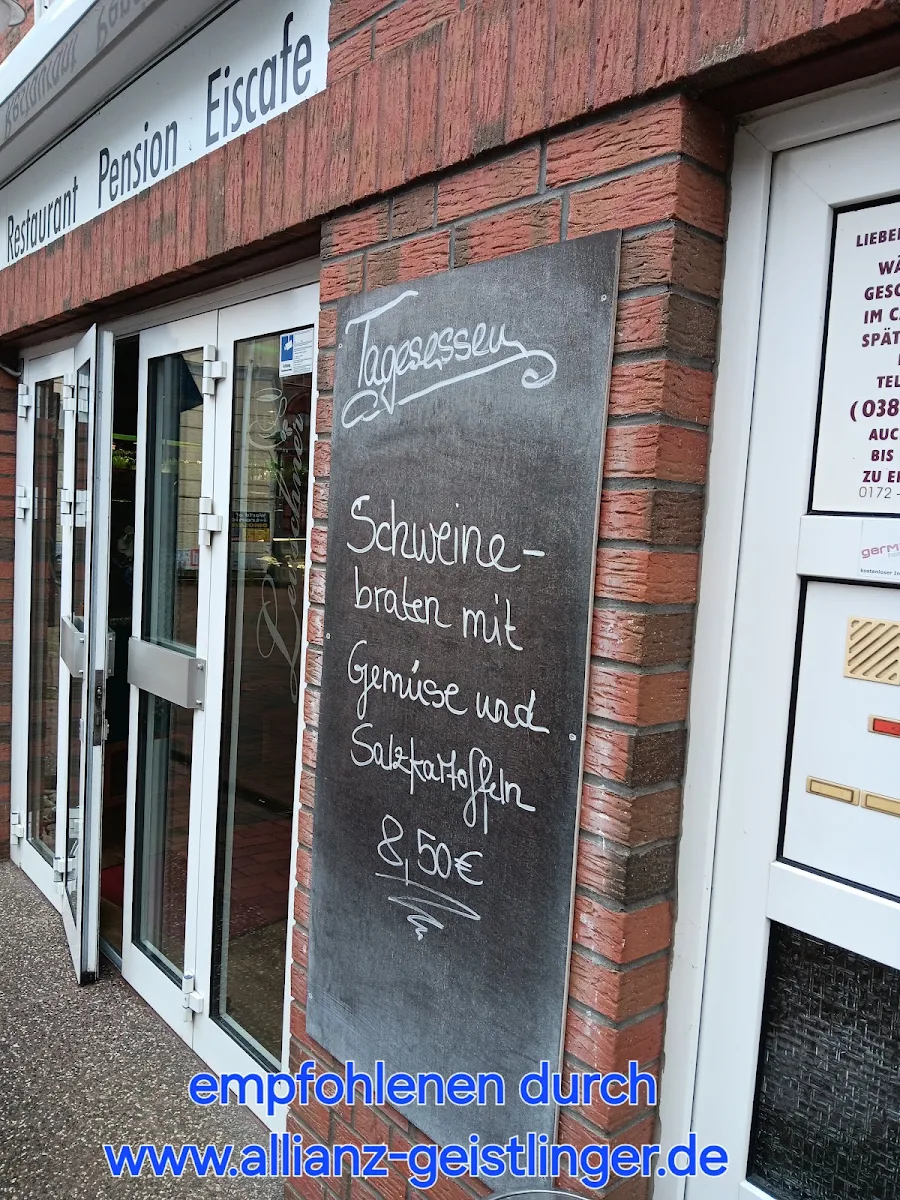 Restaurant Pension Eiscafe
Tagesessen
Schweine-
braten mit
Gemüse und
Salzkartoffeln
8,50€
LIEBE
IM
TEL
(038
AUC
BIS
ZU E
0172 -
germ
empfohlenen durch
www.allianz-geistlinger.de